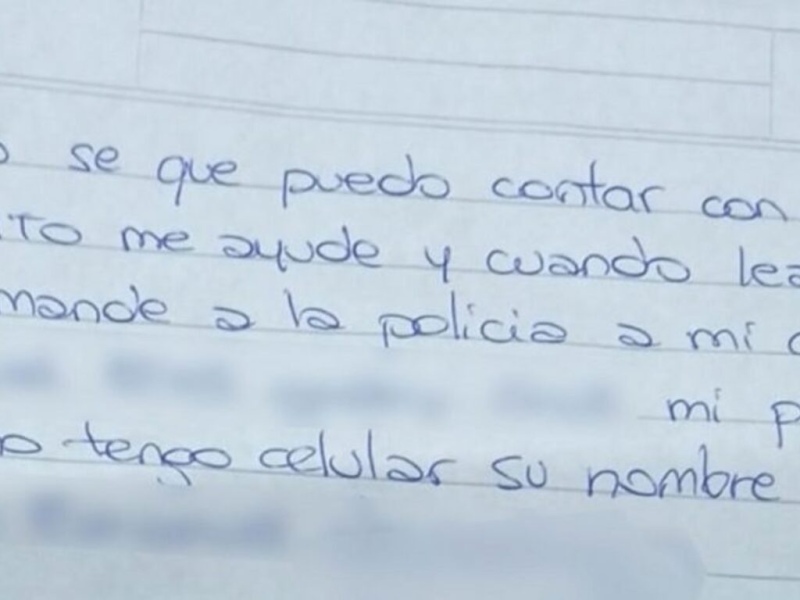 se que puedo contar con
TO me ayude y cuando lea
mande a la policia a mi
mi p
o tengo celular su nombre